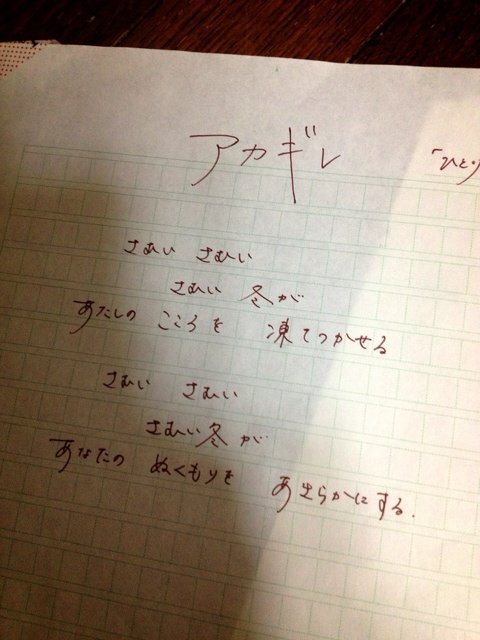 アカギレ
「ひとり
さむい さむい
さむい 冬が
あたしの こころを 凍てつかせる
さむい さむい
さむい冬が
あなたの ぬくもりを あきらかにする.